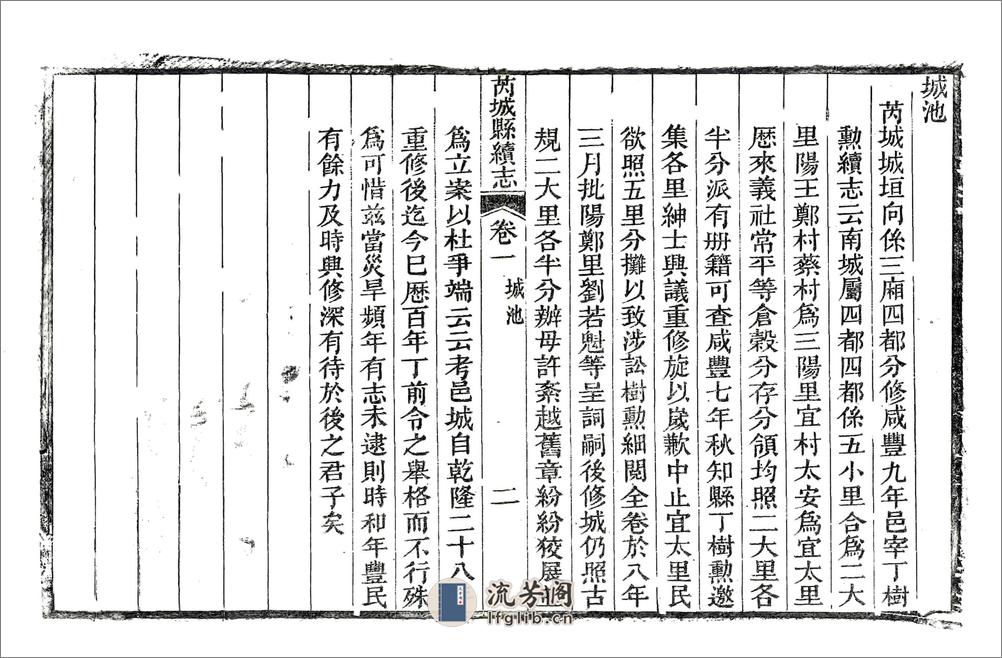 城池
芮城城垣向係三廂四都分修咸豐九年邑宰丁樹
勲續志云南城屬四都四都係五小里合爲二大
里陽王鄭村蔡村爲三陽里宜村太安爲宜太里
歷來義社常平等倉穀分存分領均照二大里各
半分派有册籍可查咸豐七年秋知縣丁樹勲邀
集各里紳士興議重修旋以歲歉中止宜太里民
欲照五里分攤以致涉訟樹勲細閱全卷於八年
三月批陽鄭里劉若魁等呈詞嗣後修城仍照古
規二大里各半分辦毋許紊越舊章紛紛狡展
芮城縣續志
卷一
城池
二
爲立案以杜爭端云云考邑城自乾隆二十八
重修後迄今已歷百年丁前令之舉格而不行殊
爲可惜兹當災旱頻年有志未逮則時和年豐民
有餘力及時興修深有待於後之君子矣
流芳阁
lfglib.cn